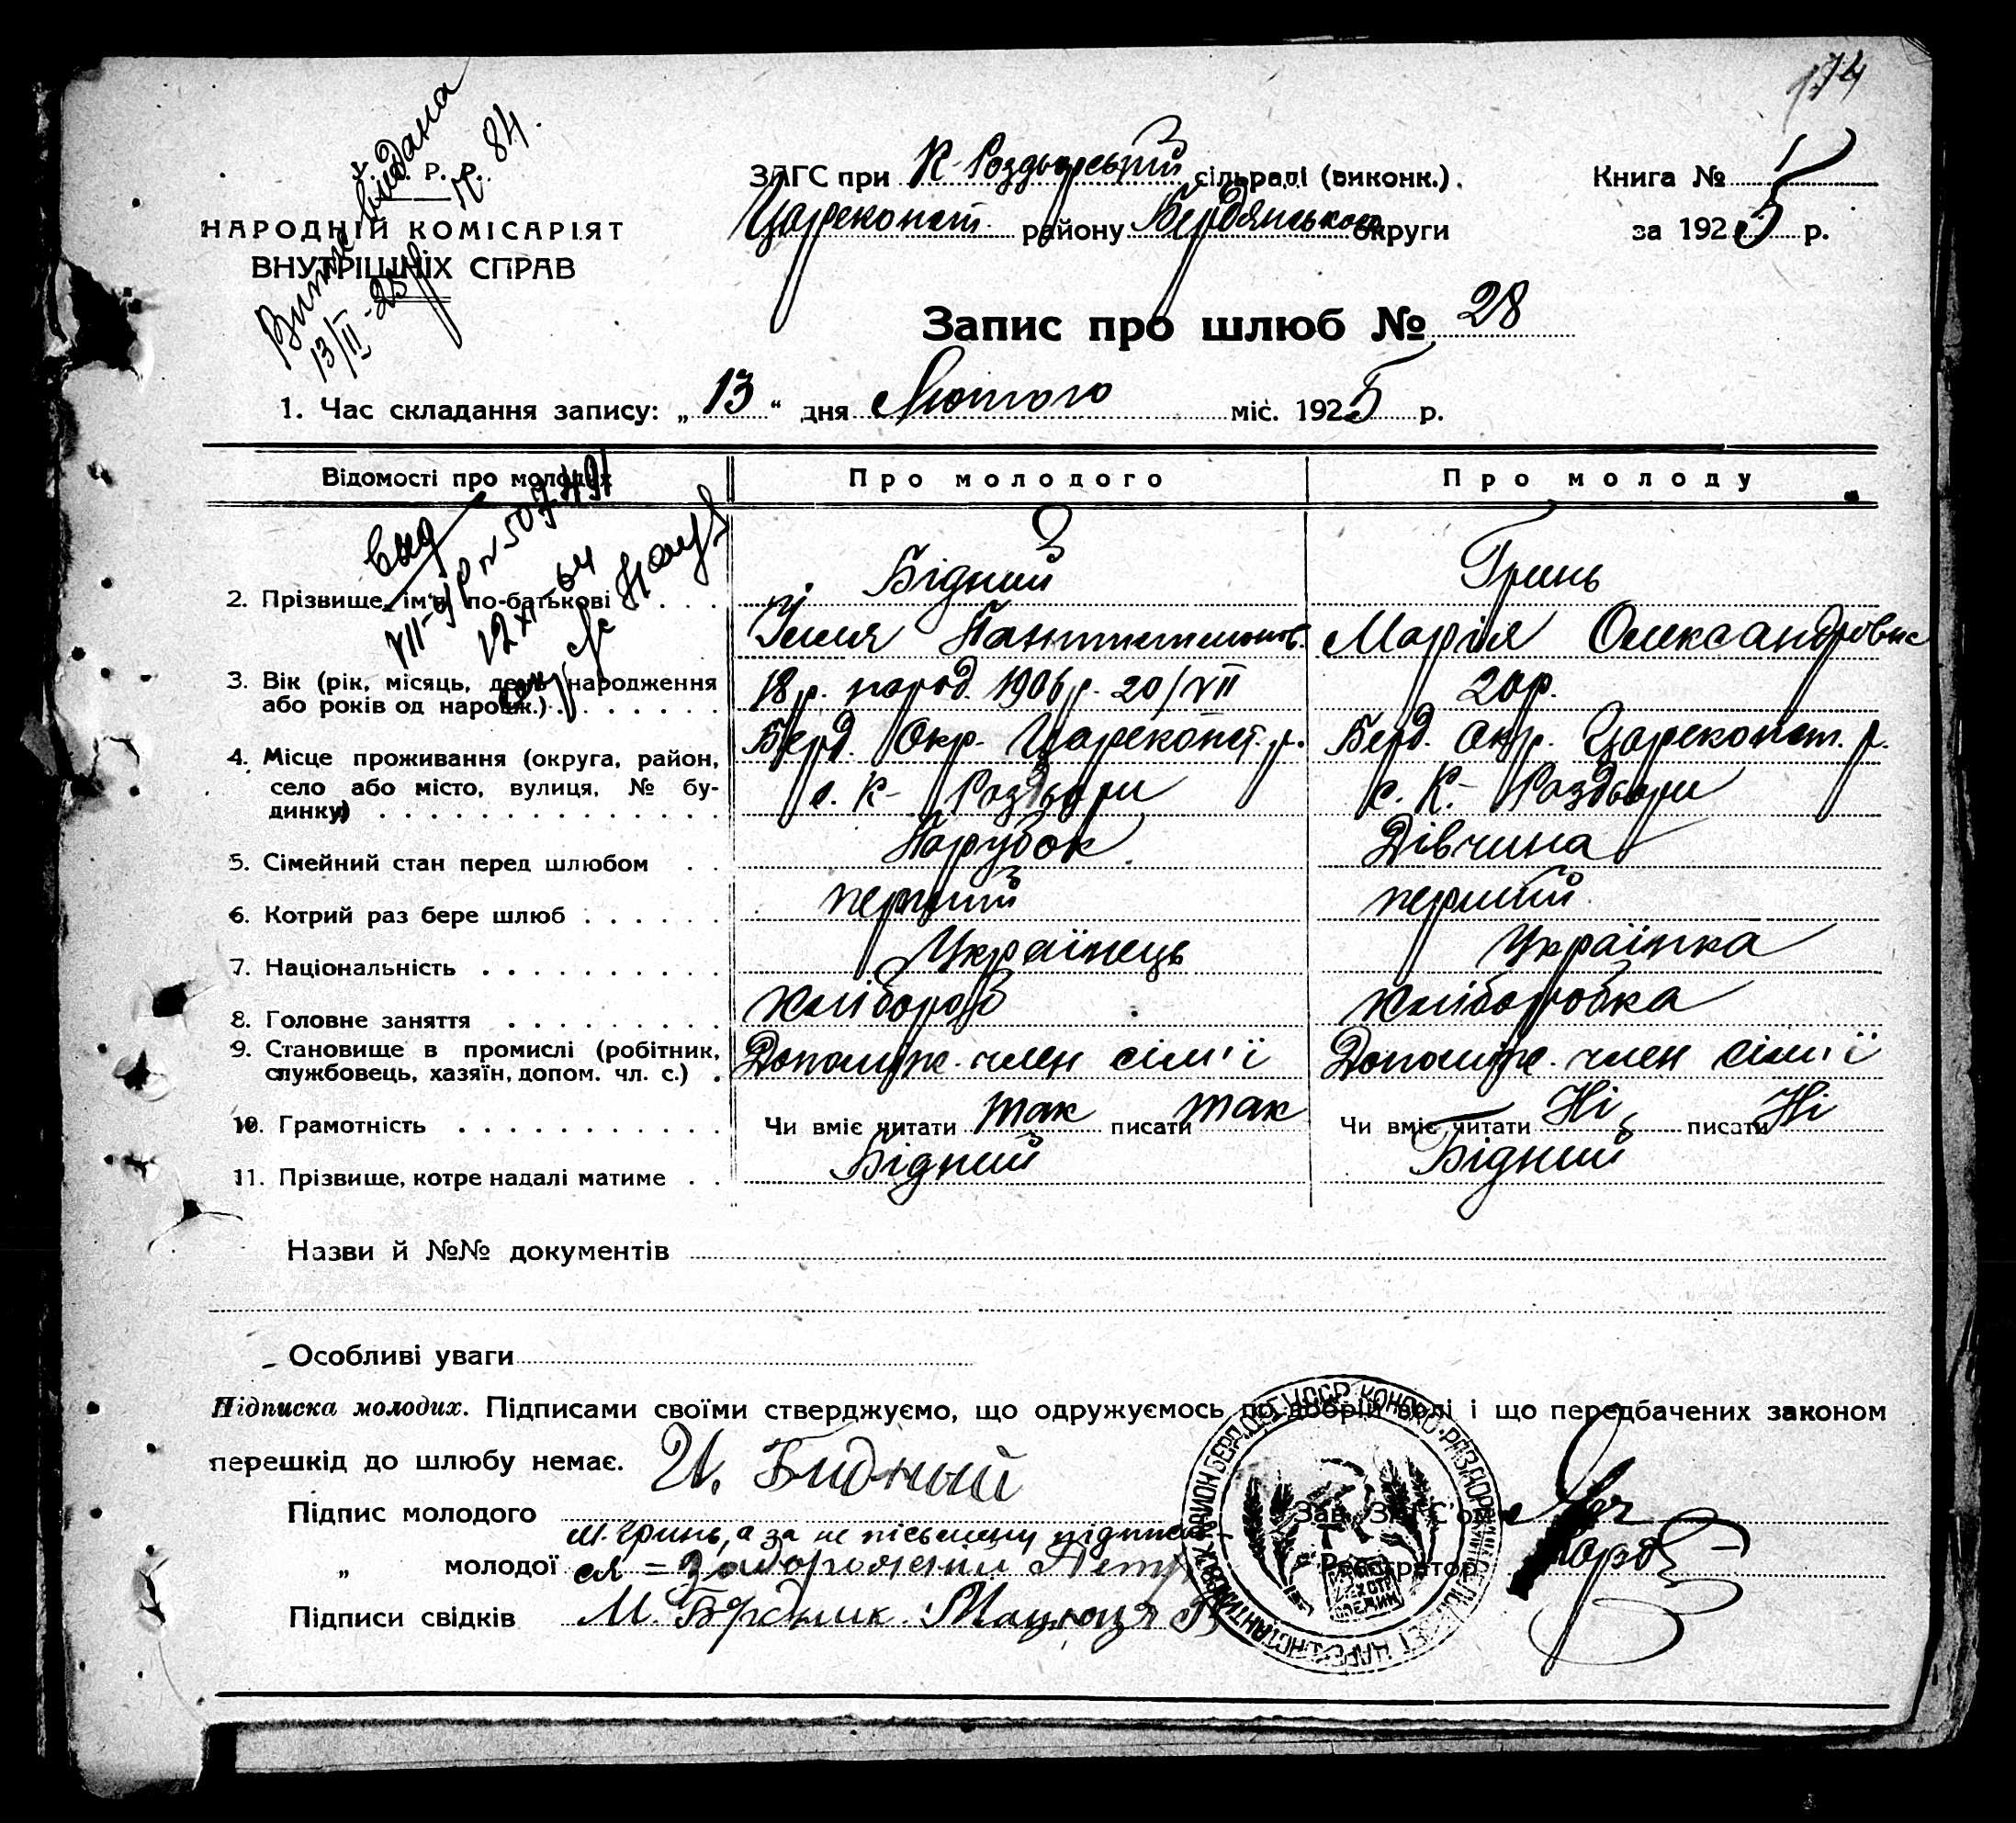 174
Витяг видана
13/II-25 р. № 84.
У. Р. Р.
НАРОДНІЙ КОМІСАРІЯТ
ВНУТРІШНІХ СПРАВ
ЗАГС при К-Роздорській сільраді (виконк.).
Цареконст. району Бердянського округи
Книга № 1
за 1925 р.
Запис про шлюб № 28
1. Час складання запису: „13“ дня Лютого міс. 1925 р.
Відомості про молодих
Про молодого
Про молоду
VII-ЯР № 507491
12 XI-64
2. Прізвище, ім'я, по-батькові . . .
Бідний
Ілля Пантилимонов.
Гринь
Марія Олександровна
3. Вік (рік, місяць, день народження
або років од народж.) . . . . . . .
18 р. народ. 1906 р. 20/VII
20 р.
4. Місце проживання (округа, район,
село або місто, вулиця, № бу-
динку) . . . . . . . . . . . . . .
Берд. Окр. Цареконст. р.
с. К- Роздори
Берд. Окр. Цареконст. р.
с. К.- Роздори
5. Сімейний стан перед шлюбом . .
Парубок
Дівчина
6. Котрий раз бере шлюб . . . . . .
перший
перший
7. Національність . . . . . . . . . .
Українець
Українка
8. Головне заняття . . . . . . . . .
Хлібороб
Хліборобка
9. Становище в промислі (робітник,
службовець, хазяїн, допом. чл. с.) .
Допоміж. член сім'ї
Допоміж. член сім'ї
10. Грамотність . . . . . . . . . . .
Чи вміє читати так писати так
Чи вміє читати Ні писати Ні
11. Прізвище, котре надалі матиме . .
Бідний
Бідний
Назви й №№ документів
Особливі уваги
Підписка молодих. Підписами своїми стверджуємо, що одружуємось по добрій волі і що передбачених законом
перешкід до шлюбу немає.
Підпис молодого И. Бидний
М. Гринь, а за не письмену підписа-
„ молодої ся = Задорожний Петр
Підписи свідків М. Бердник Мацюця
Зав. ЗАГС'ом
Реєстратор